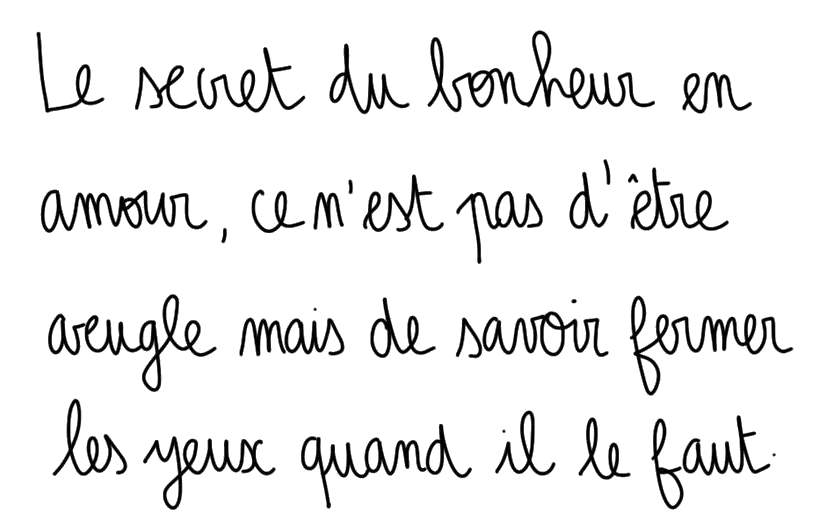 Le secret du bonheur en
amour, ce n'est pas d'être
aveugle mais de savoir fermer
les yeux quand il le faut.